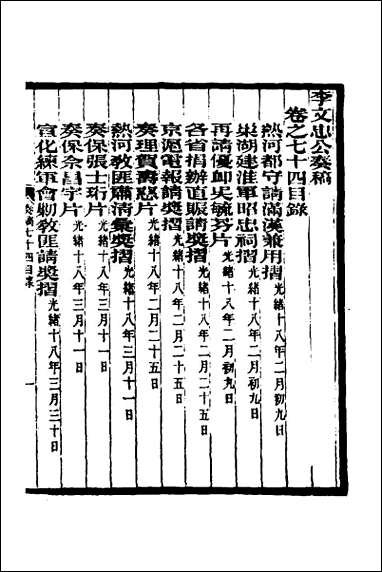 李文忠公奏稿
卷之七十四目錄
熱河都守請滿漢兼用摺光緒十八年二月初九日
巢湖建淮軍昭忠祠摺光緒十八年二月初九日
再請優卹史毓芬片光緒十八年二月初九日
各省捐辦直賑請獎摺光緒十八年二月二十五日
京滬電報請獎摺光緒十八年二月二十五日
奏理賀壽慈片光緒十八年二月二十五日
熱河教匪肅清彙獎摺光緒十八年三月十一日
奏保張士珩片光緒十八年三月十一日
奏保佘昌宇片光緒十八年三月十一日
宣化練軍會勦教匪請獎摺光緒十八年三月三十日
奏稿七十四目錄
一